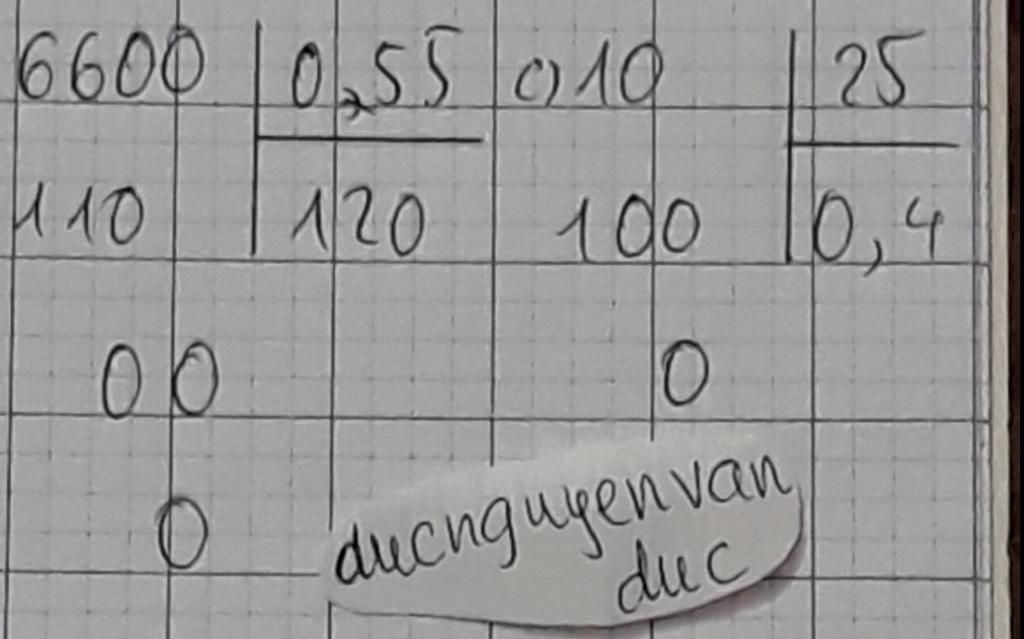 6600 0,55 c) 10 25
110 120 100 0,4
00 0
0
ducnguyenvan
duc